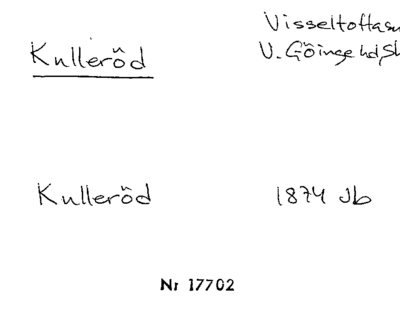 Kulleröd
Visseltofta
V. Göinge hd, Sk
Kulleröd
1874 Jb
Nr 17702